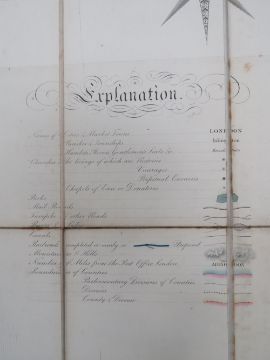 Explanation.
Names of Cities & Market Towns LONDON
Parishes & Townships
Hamlets, Farms, Gentlemens Seats &c.
Churches the livings of which are Rectories
Vicarages
Perpetual Curacies
Chapels of Ease or Donatives
Parks
Mail Roads
Turnpike & other Roads
Canals
Railroads completed or nearly so Proposed
Mountains & Hills
Number of Miles from the Post Office London
Boundaries of Counties
Parliamentary Divisions of Counties
County & Divisions